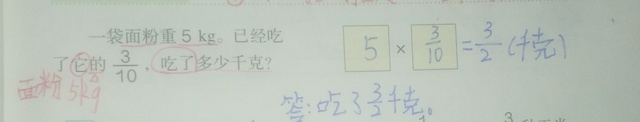 一袋面粉重 5 kg。已经吃
了它的 3/10，吃了多少千克？
5 × 3/10 = 3/2 (千克)
面粉 5kg
答：吃了 3/2 千克。